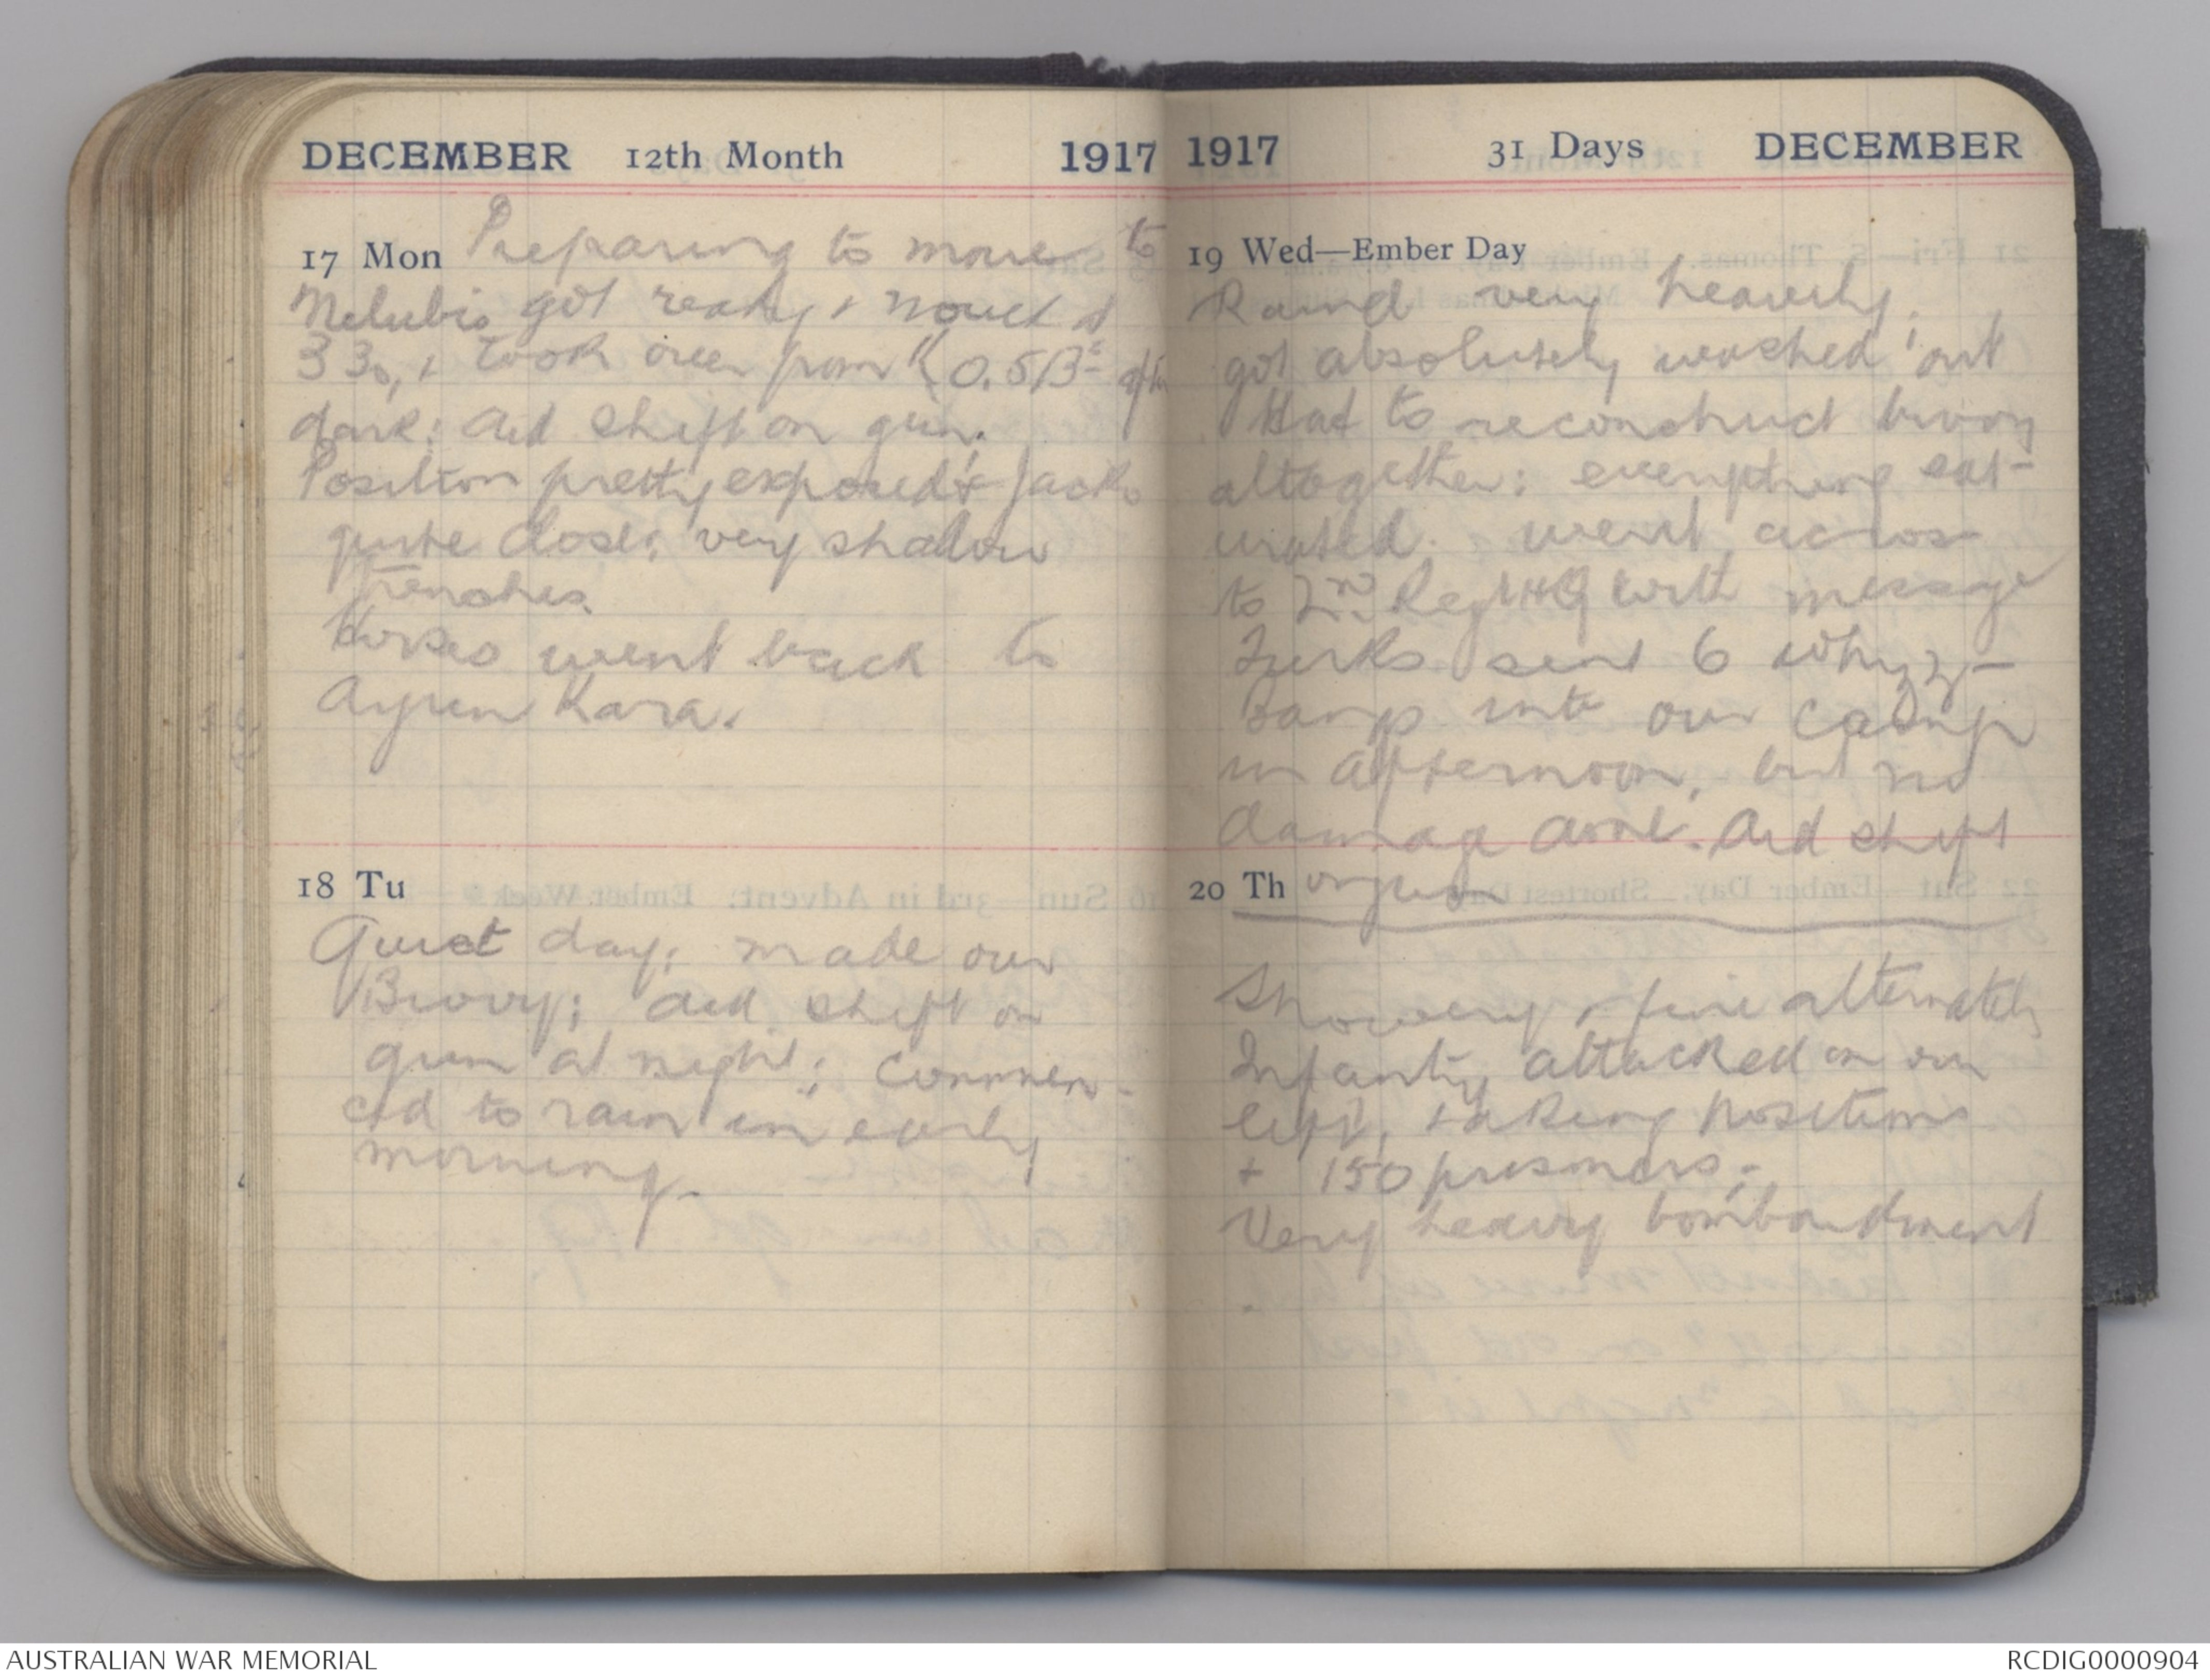 DECEMBER 12th Month 1917
17 Mon Preparing to move to
Nelubis got ready & moved at
330, & took over from K.O.S.B's after
dark: did shift on gun.
Position pretty exposed & Jacko
quite close; very shallow
trenches.
Horses went back to
Ayun Kara.
18 Tu
Quiet day; made our
Bivvy; did shift on
gun at night; Commen-
ced to rain in early
morning.
1917 31 Days DECEMBER
19 Wed—Ember Day
Raind very heavily,
got absolutely washed out
Had to reconstruct bivvy
altogether: everything sat-
urated. went across
to 2nd Regt HQ with message
Turks sent 6 whizz-
bangs into our camp
in afternoon, but no
damage done. did shift
20 Th on gun
Showery & fine alternately
Infantry attacked on our
left, taking positions
+ 150 prisoners;
Very heavy bombardment
AUSTRALIAN WAR MEMORIAL
RCDIG0000904